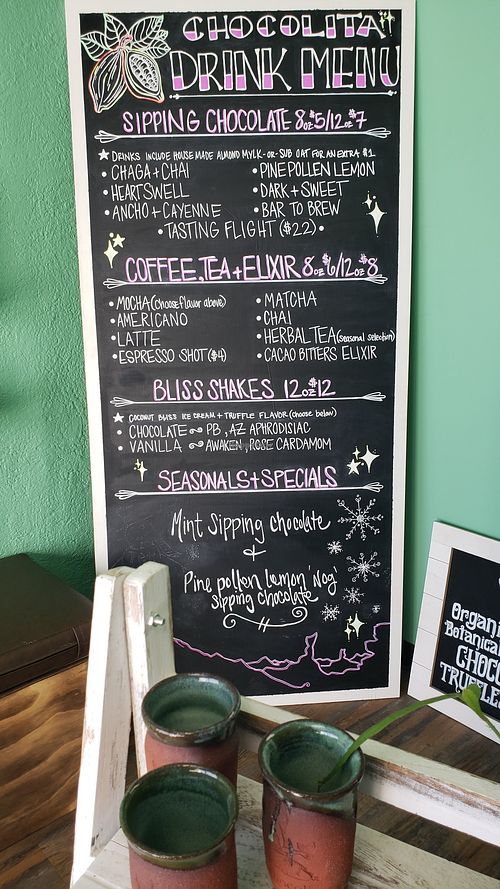 CHOCOLITA
DRINK MENU
SIPPING CHOCOLATE 8oz $5/12oz $7
★ DRINKS INCLUDE HOUSEMADE ALMOND MYLK-OR-SUB OAT FOR AN EXTRA $1.
• CHAGA + CHAI
• HEARTSWELL
• ANCHO + CAYENNE
• PINE POLLEN LEMON
• DARK + SWEET
• BAR TO BREW
• TASTING FLIGHT ($22) •
COFFEE, TEA + ELIXIR 8oz $6/12oz $8
• MOCHA (choose flavor above)
• AMERICANO
• LATTE
• ESPRESSO SHOT ($4)
• MATCHA
• CHAI
• HERBAL TEA (seasonal selection)
• CACAO BITTERS ELIXIR
BLISS SHAKES 12oz $12
★ COCONUT BLISS ICE CREAM + TRUFFLE FLAVOR (choose below)
• CHOCOLATE ~ PB, AZ APHRODISIAC
• VANILLA ~ AWAKEN, ROSE CARDAMOM
SEASONALS + SPECIALS
Mint Sipping Chocolate
+
Pine pollen lemon 'Nog'
sipping chocolate
Organi
Botanica
CHOC
TRUFFLES